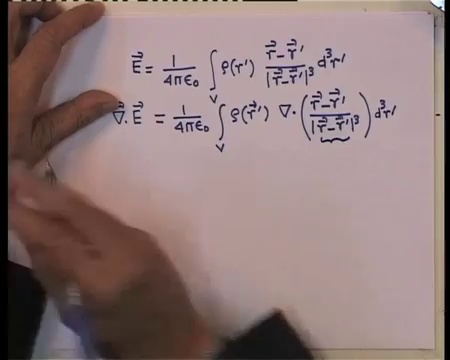 E⃗ = 1/4πε₀ ∫_V ρ(r') (r⃗ - r⃗')/|r⃗ - r⃗'|³ d³r'
∇⃗. E⃗ = 1/4πε₀ ∫_V ρ(r⃗') ∇. ((r⃗ - r⃗')/|r⃗ - r⃗'|³) d³r'